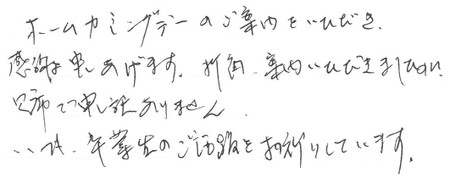 ホームカミングデーのご案内をいただき、
感謝を申しあげます。折角、ご案内いただきましたが、
欠席で申し訳ありません。
いつも、卒業生のご活躍をお祈りしています。